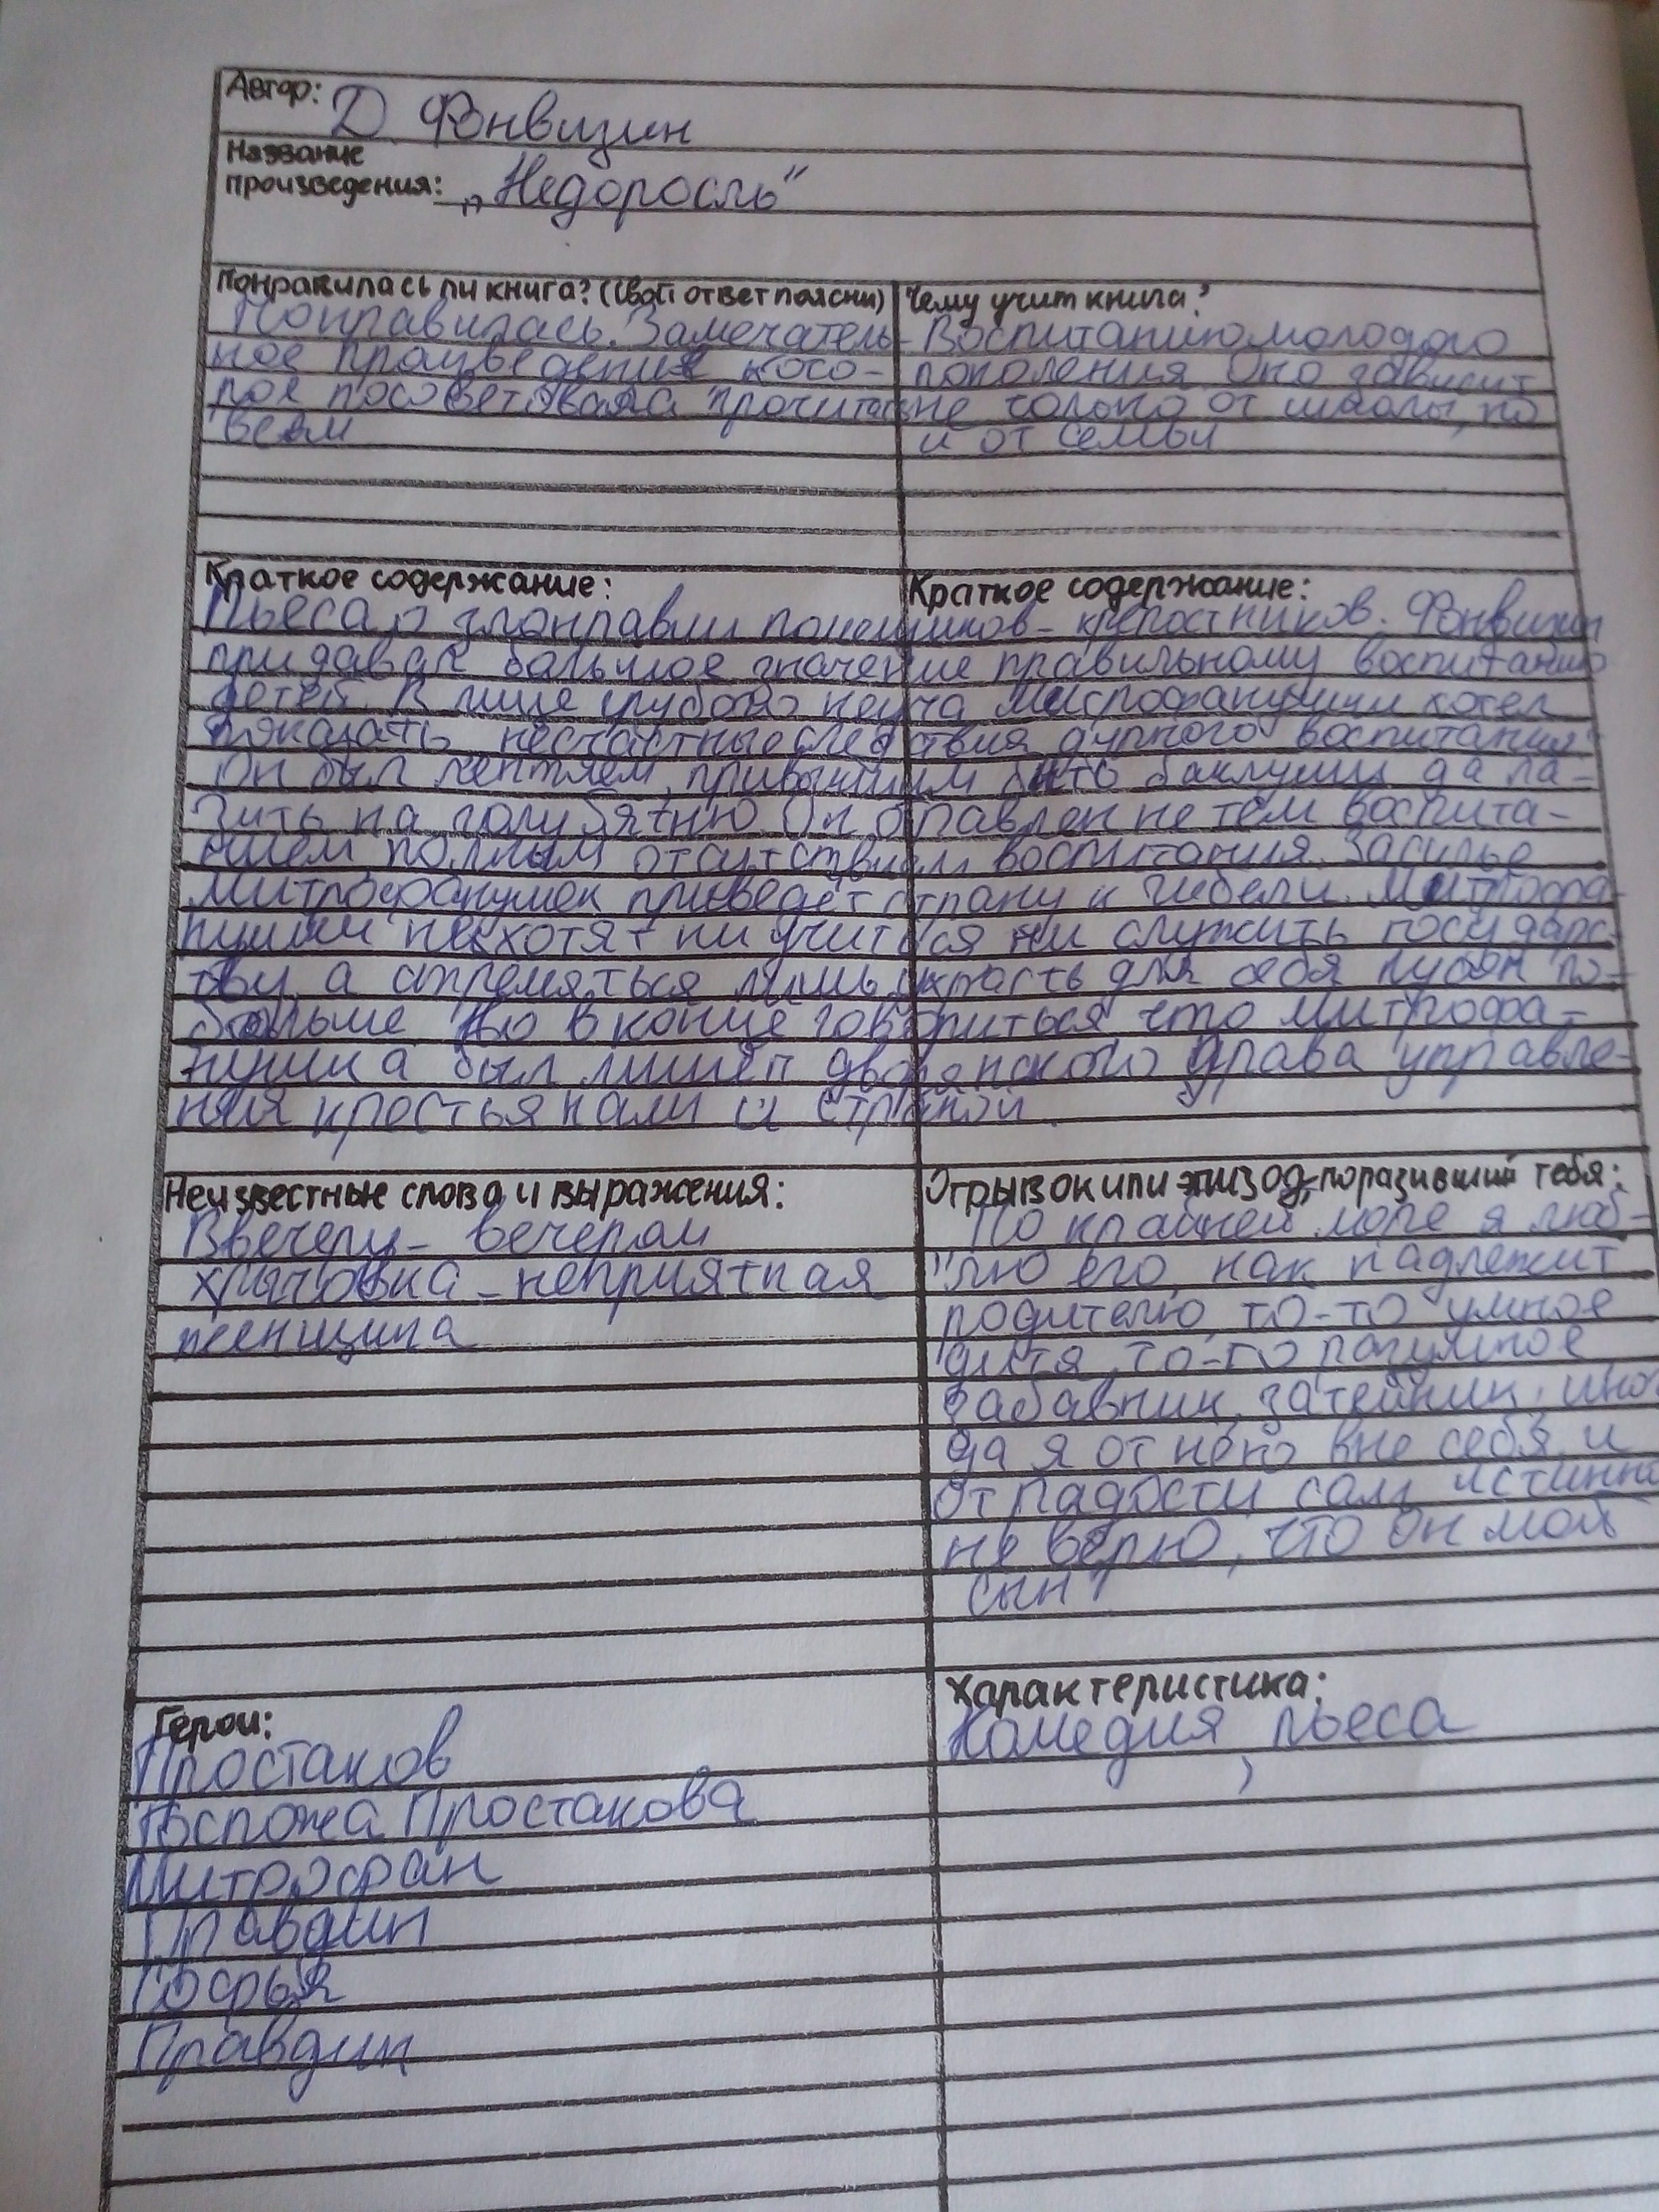 Автор: Д. Фонвизин
Название
произведения: „Недоросль"
Понравилась ли книга? (свой ответ поясни)
Понравилась. Замечатель-
ное произведение кото-
рое посоветовала прочитать
всем
Чему учит книга?
Воспитанию молодого
поколения. Оно зависит
не только от школы, но
и от семьи
Краткое содержание: Краткое содержание:
Пьеса о злонравии помещиков-крепостников. Фонвизин
придавал большое значение правильному воспитанию
детей. В лице грубого неуча Митрофанушки хотел
показать несчастные следствия дурного воспитания.
Он был лентяем, привыкшим бить баклуши да ла-
зить на голубятню. Он отравлен не тем воспита-
нием полным отсутствием воспитания. Засилье
Митрофанушек приведёт страну к гибели. Митрофа-
нушки не хотят ни учиться ни служить государс-
тву, а стремяться лишь украсть для себя кусок по-
больше. Но в конце говориться что Митрофа-
нушка был лишён дворянского права управле-
ния крестьянами и страной.
Неизвестные слова и выражения:
Ввечеру - вечером
хрычовка - неприятная
женщина
Отрывок или эпизод, поразивший тебя:
По крайней мере я люб-
"лю его, как надлежит
родителю, то-то умное
дитя, то-то разумное
забавник, затейник, иног
да я от него вне себя и
от радости сам истинно
не верю, что он мой
сын"
Герои:
Простаков
Госпожа Простакова
Митрофан
Правдин
Софья
Правдин
Характеристика:
Комедия, пьеса